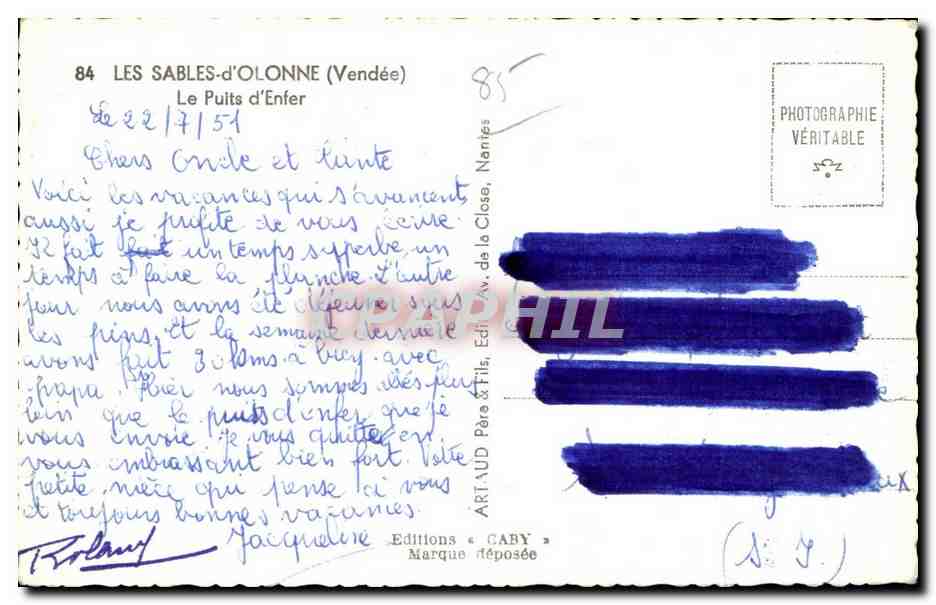 84 LES SABLES-d'OLONNE (Vendée)
Le Puits d'Enfer
Le 22/7/51
Chers Oncle et tante
Voici les vacances qui s'avancent,
aussi je profite de vous écrire.
Il fait fait un temps superbe un
temps à faire la planche. L'autre
jour nous avons été déjeuner sous
les pins, et la semaine dernière
avons fait 30 kms à bicy. avec
papa. Hier nous sommes allés plus
loin que le puits d'enfer que je
vous envoie. Je vous quitte en
vous embrassant bien fort. Votre
petite nièce qui pense à vous
et toujours bonnes vacances.
Jacqueline
Roland
85
ARTAUD Père & Fils, Edit. Av. de la Close, Nantes
PHOTOGRAPHIE
VÉRITABLE
CPAPHIL
Editions « CABY »
Marque déposée
(S. I.)